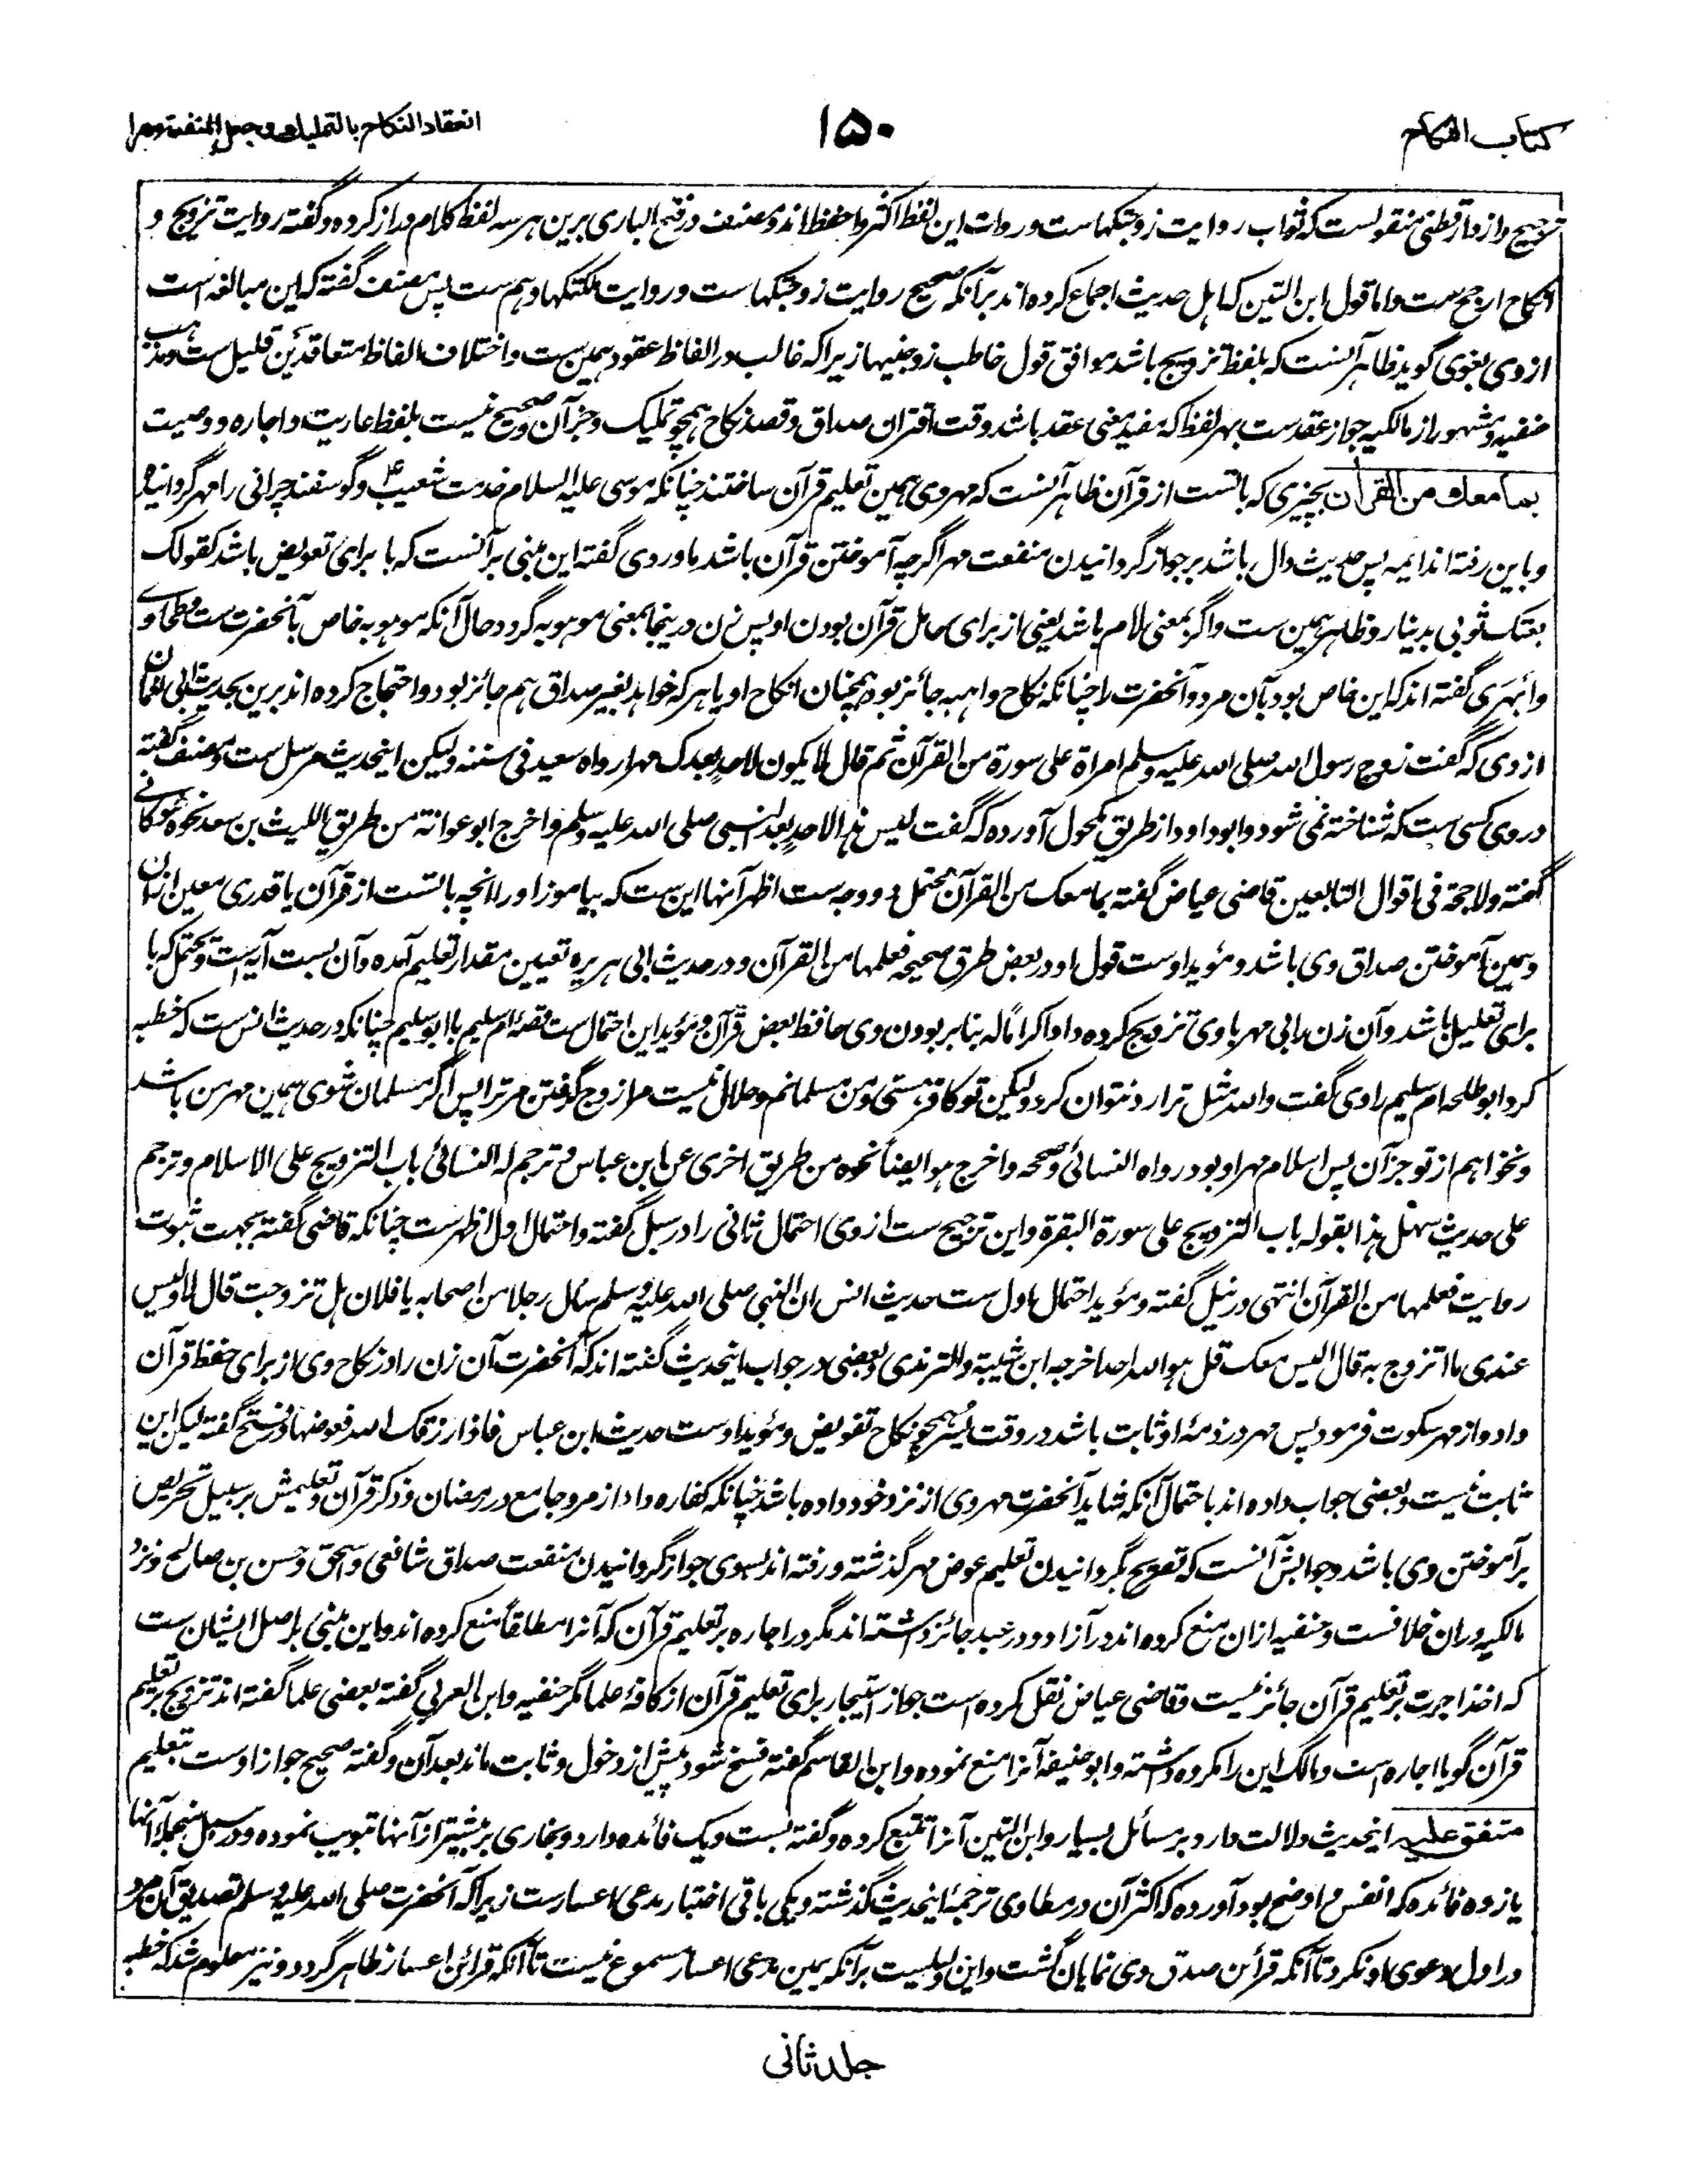 کتاب النکاح
۱۵۰
انعقاد النکاح بالتملیک و جعل المنفعة مهرا
ترجیح واز دارقطنی منقولست که ثواب روایت زوجتکهاست و روات این لفظ اکثر و احفظ اند و مصنف در فتح الباری برین هر سه لفظ کلام دراز کرده و گفته روایت تزویج و
انکاح ارجح ست و اما قول ابن التین که اهل حدیث اجماع کرده اند بر آنکه صحیح روایت زوجتکهاست و روایت ملکتکها وهم ست پس مصنف گفته که این مبالغه است
از وی بغوی گوید ظاهر آنست که بلفظ تزویج باشد موافق قول خاطب زوجنیها زیرا که غالب در الفاظ عقود همین ست و اختلاف الفاظ متعاقدین قلیل ست و مذهب
حنفیه و مشهور از مالکیه جواز عقد ست بهر لفظ که مفید معنی عقد باشد وقت اقتران صداق و قصد نکاح همچو تملیک و جز آن و صحیح نیست بلفظ عاریت و اجاره و وصیت
بما معک من القرآن بچیزی که با تست از قرآن ظاهر آنست که مهر وی همین تعلیم قرآن ساختند چنانکه موسی علیه السلام خدمت شعیب ع و گوسفند چرانی را مهر گردانیده
و باین رفته اند ایمه پس حدیث دال باشد بر جواز گردانیدن منفعت مهر اگرچه آموختن قرآن باشد ماوردی گفته این مبنی بر آنست که با برای تعویض باشد کقولک
بعتک ثوبی بدینار و ظاهر همین ست و اگر بمعنی لام باشد یعنی از برای حامل قرآن بودن او پس زن درینجا بمعنی موهوبه گردد حال آنکه موهوبه خاص بآنحضرت ست و طحاوی
و ابهری گفته اند که این خاص بود بآن مرد و آنحضرت را چنانکه نکاح واهبه جائز بود همچنان انکاح او با هر که خواهد بغیر صداق هم جائز بود و احتجاج کرده اند برین بحدیث ابی النعمان
ازدی که گفت زوج رسول الله صلی الله علیه وسلم امراة علی سورة من القرآن ثم قال لا یکون لاحد بعدک مهرا رواه سعید فی سننه ولیکن اینحدیث مرسل ست و مصنف گفته
در وی کسی ست که شناخته نمی شود و ابوداود از طریق مکحول آورده که گفت لیس هذا لاحد بعد النبی صلی الله علیه وسلم و اخرج ابوعوانة من طریق اللیث بن سعد نحوه شوکانی
گفته ولا حجة فی اقوال التابعین قاضی عیاض گفته بما معک من القرآن محتمل دو وجه ست اظهر آنها این ست که بیاموزد او را آنچه با تست از قرآن یا قدری معین ازان
و همین آموختن صداق وی باشد و مؤید اوست قول او در بعض طرق صحیحه فعلمها من القرآن و در حدیث ابی هریره تعیین مقدار تعلیم آمده و آن بست آیه است و محتمل که با
برای تعلیل باشد و آن زن را بی مهر با وی تزویج کرده داد اکراما له بنابر بودن وی حافظ بعض قرآن و مؤید این احتمال ست قصه ام سلیم با ابو سلیم چنانکه در حدیث انس ست که خطبه
کرد ابو طلحه ام سلیم را وی گفت والله مثل ترا رد نتوان کرد ولیکن تو کافر هستی و من مسلمانم و حلال نیست مرا زوج گرفتن مر ترا پس اگر مسلمان شوی همین مهر من باشد
و نخواهم از تو جز آن پس اسلام مهر او بود رواه النسائی و صححه و اخرج هو ایضا نحوه من طریق اخری عن ابن عباس و ترجم له النسائی باب التزویج علی الاسلام و ترجم
علی حدیث سهل هذا بقوله باب التزویج علی سورة البقرة و این ترجیح ست از وی احتمال ثانی را در سبل گفته و احتمال اول اظهر ست چنانکه قاضی گفته بجهت ثبوت
روایت فعلمها من القرآن انتهی در نیل گفته و مؤید احتمال اول ست حدیث انس ان النبی صلی الله علیه وسلم سأل رجلا من اصحابه یا فلان هل تزوجت قال لا ولیس
عندی ما اتزوج به قال الیس معک قل هو الله احد اخرجه ابن شیبة والترمذی و بعضی در جواب اینحدیث گفته اند که آنحضرت آن زن را در نکاح وی از برای حفظ قرآن
داد و از مهر سکوت فرمود پس مهر در ذمهٔ او ثابت باشد در وقت یسر همچو نکاح تفویض و مؤید اوست حدیث ابن عباس فاذا رزقک الله فعوضها در فتح گفته لیکن این
ثابت نیست و بعضی جواب داده اند باحتمال آنکه شاید آنحضرت مهر وی از نزد خود داده باشد چنانکه کفاره داد از مرد جامع در رمضان و ذکر قرآن و تعلیمش بر سبیل تحریص
بر آموختن وی باشد و جوابش آنست که تصریح بگردانیدن تعلیم عوض مهر گذشته و رفته اند بسوی جواز گردانیدن منفعت صداق شافعی و اسحق و حسن بن صالح و نزد
مالکیه دران خلافست و حنفیه ازان منع کرده اند در آزاد و در عبد جائز داشته اند مگر در اجاره بر تعلیم قرآن که آنرا مطلقا منع کرده اند و این مبنی بر اصل ایشان ست
که اخذ اجرت بر تعلیم قرآن جائز نیست و قاضی عیاض نقل کرده است جواز استیجار برای تعلیم قرآن از کافهٔ علما مگر حنفیه و ابن العربی گفته بعضی علما گفته اند تزویج بر تعلیم
قرآن گویا اجاره است و مالک این را مکروه داشته و ابو حنیفه آنرا منع نموده و ابن القاسم گفته فسخ شود پیش از دخول و ثابت ماند بعد آن و گفته صحیح جواز اوست بتعلیم
متفق علیه اینحدیث دلالت دارد بر مسائل بسیار و ابن التین آنرا تتبع کرده و گفته بست و یک فائده دارد و بخاری بر بیشتر از آنها تبویب نموده و در سبل منجملهٔ آنها
یازده فائده که انفس و اوضح بود آورده که اکثر آن در مطاوی ترجمهٔ اینحدیث گذشته و یکی باقی اختبار مدعی اعسارست زیرا که آنحضرت صلی الله علیه وسلم تصدیق آن مرد
در اول دعوی او نکرد تا آنکه قرائن صدق وی نمایان گشت و این دلیلیست بر آنکه یمین مدعی اعسار مسموع نیست تا آنکه قرائن اعسار ظاهر گردد و نیز معلوم شد که خطبه
جلد ثانی